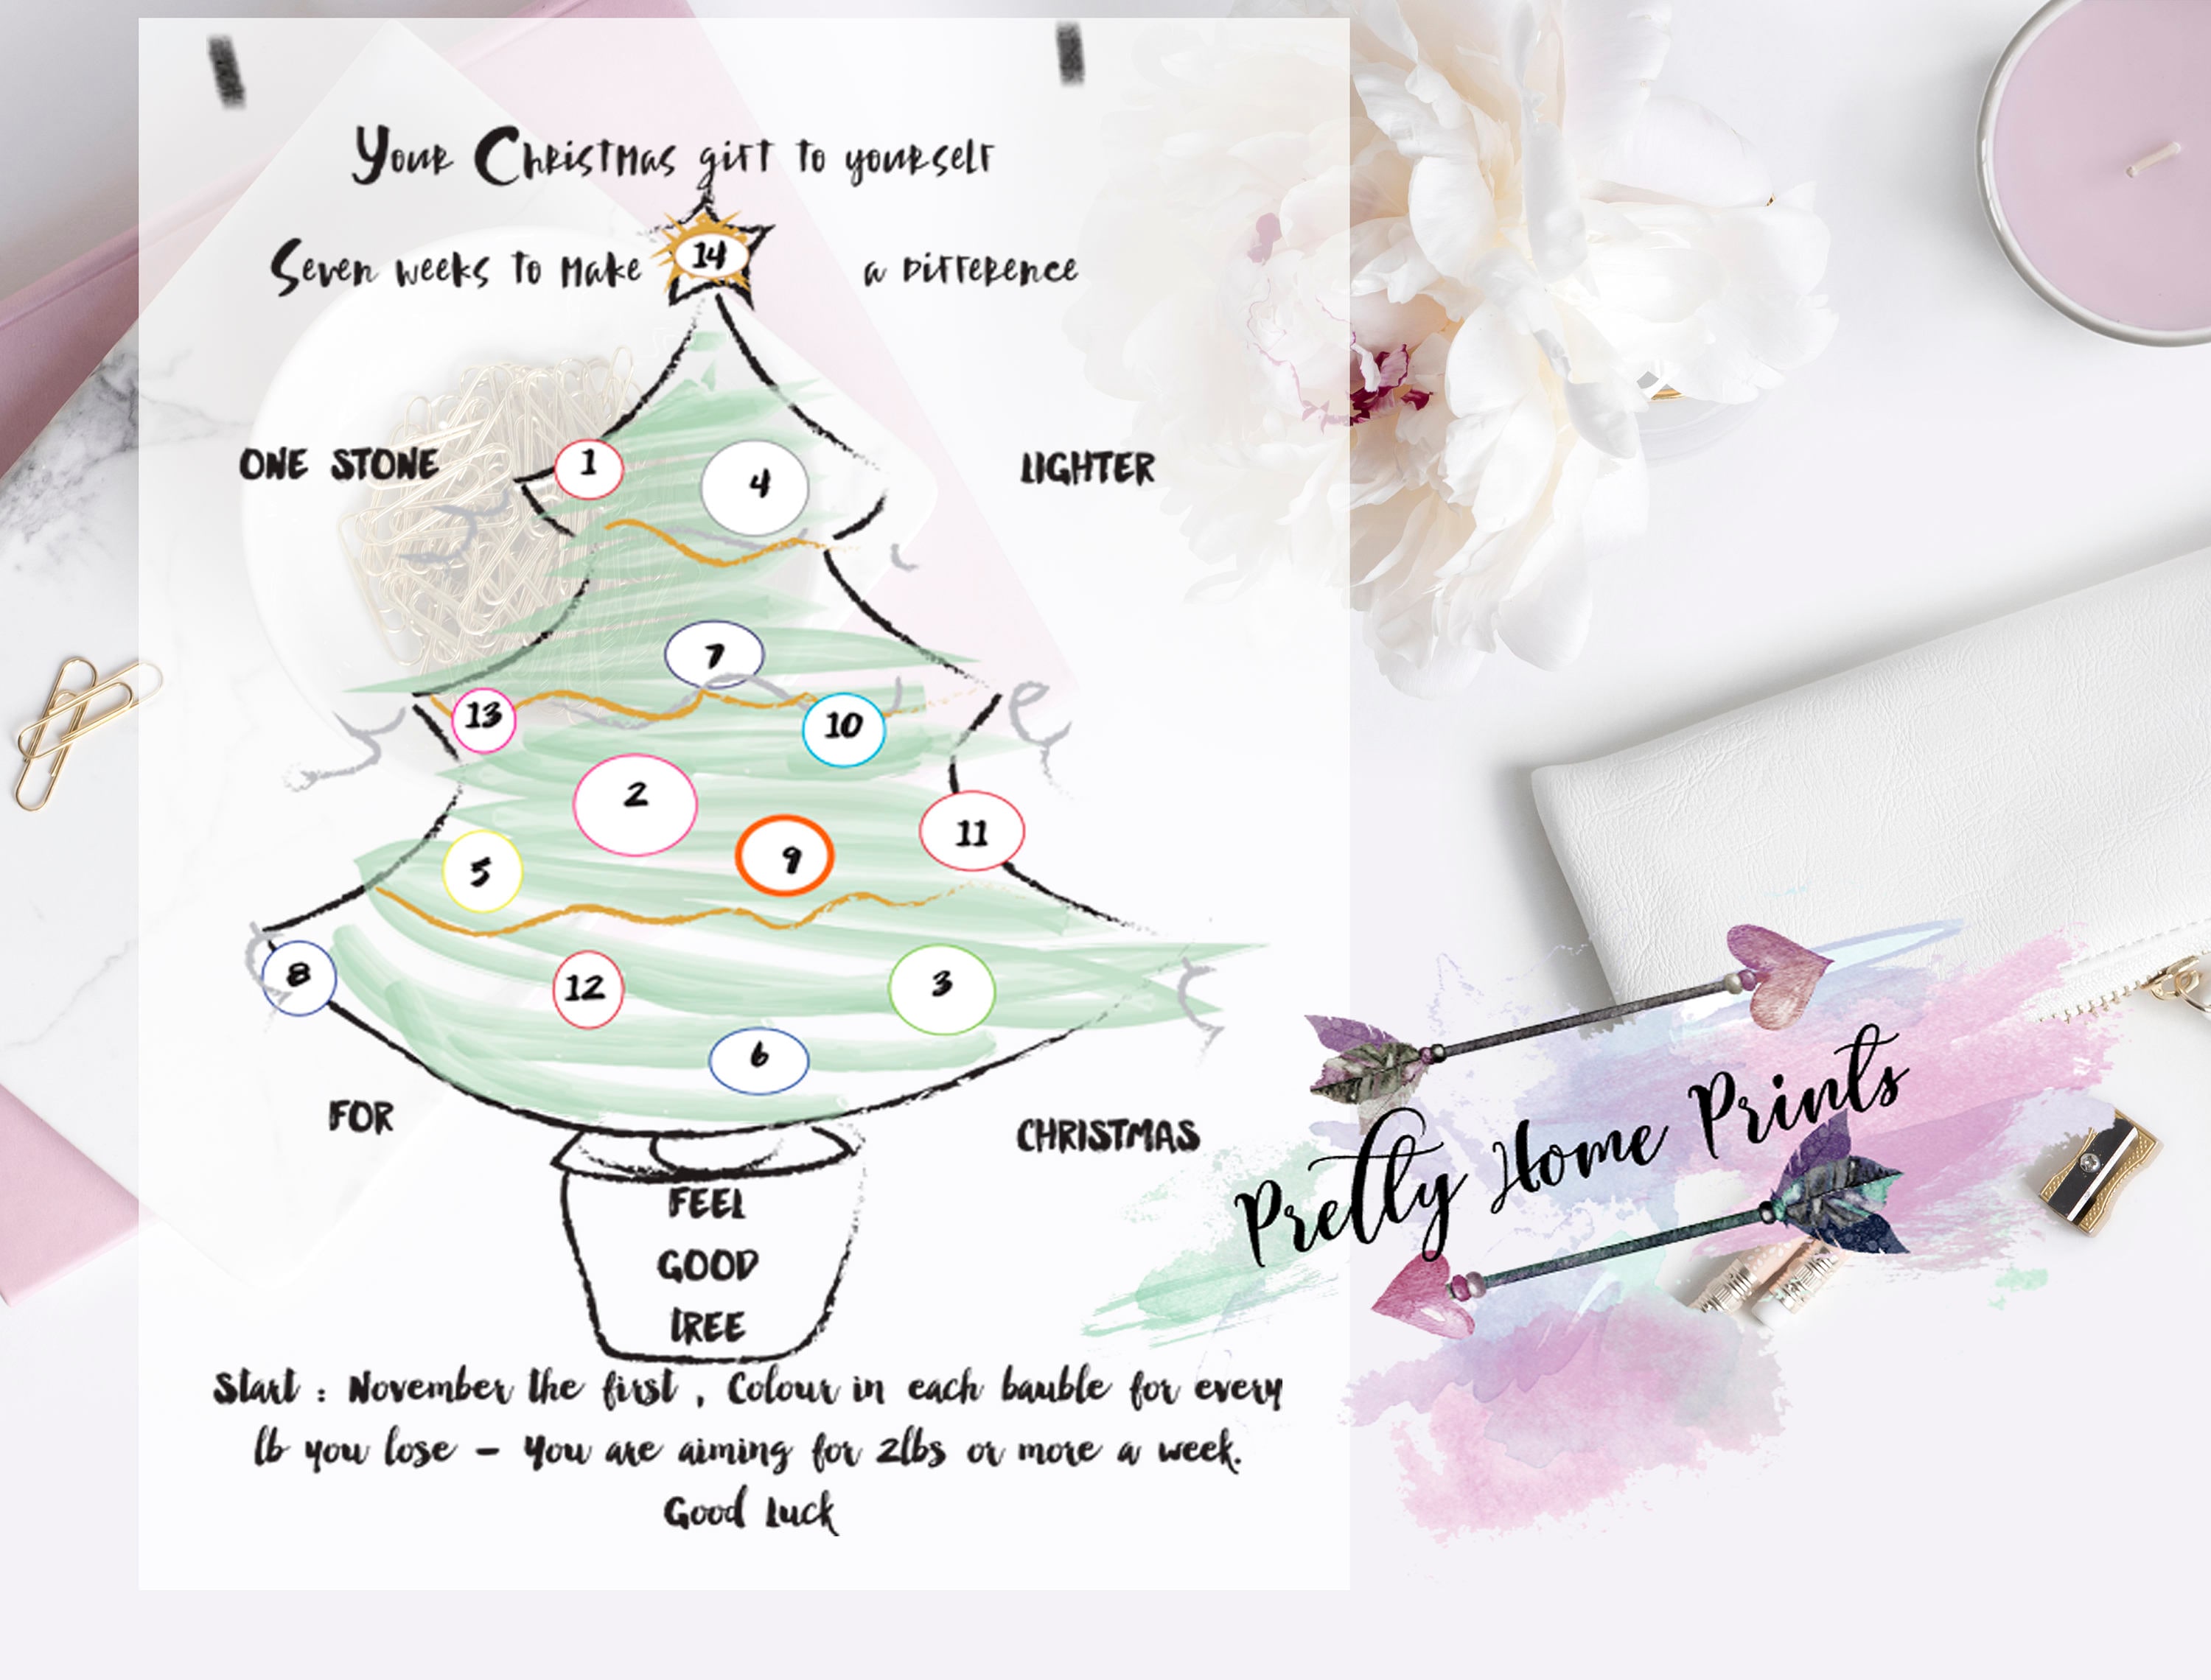 Your Christmas gift to yourself
14
Seven weeks to make a difference
ONE STONE LIGHTER
1
4
7
13
10
2
11
5
9
8
12
3
6
FOR CHRISTMAS
FEEL
GOOD
TREE
Start : November the first , Colour in each bauble for every
lb you lose - You are aiming for 2lbs or more a week.
Good Luck
Pretty Home Prints